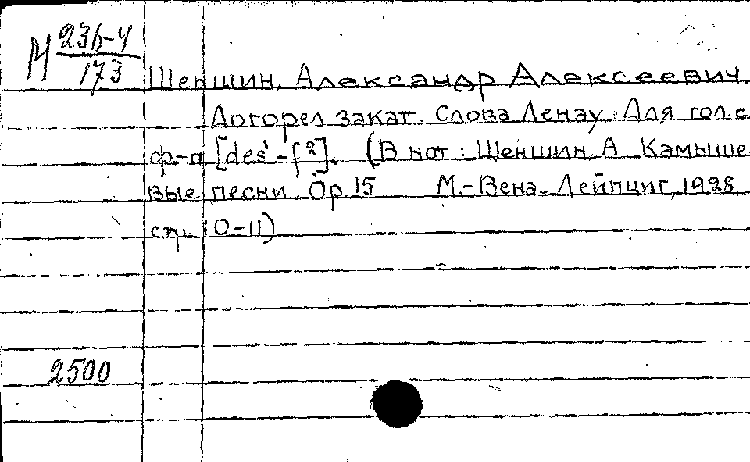 М 236-4
173
Шеншин, Александр Алексеевич
Догорел закат. Слова Ленау. Для гол с
ф-п [des¹-f²]. (В нот: Шеншин, А Камыше
вые песни. Ор. 15 М.-Вена-Лейпциг, 1928
стр. 10-11)
2500